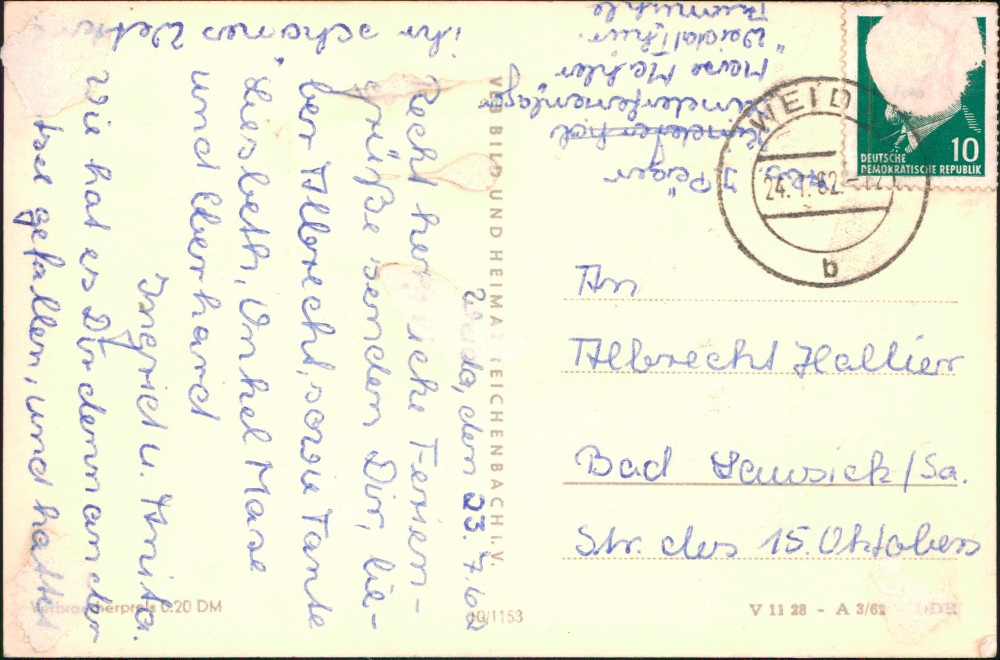 Weida, den 23.7.62
Recht herzliche Ferien-
grüße senden Dir, lie-
ber Albrecht, sowie Tante
Liesbeth, Onkel Maxe
und Eberhard
Ingrid u. Anita.
Wie hat es Dir denn an der
See gefallen, und hattet
ihr schönes Wetter
Peger
Kinderferienlager
"Weidatal"
VEB BILD UND HEIMAT REICHENBACH i. V.
WEIDA
24.7.62
b
DEUTSCHE
DEMOKRATISCHE REPUBLIK
10
An
Albrecht Hallier
Bad Lausick/Sa.
Str. des 15. Oktobers
Verbraucherpreis 0.20 DM
V 11 28 - A 3/62 DDR